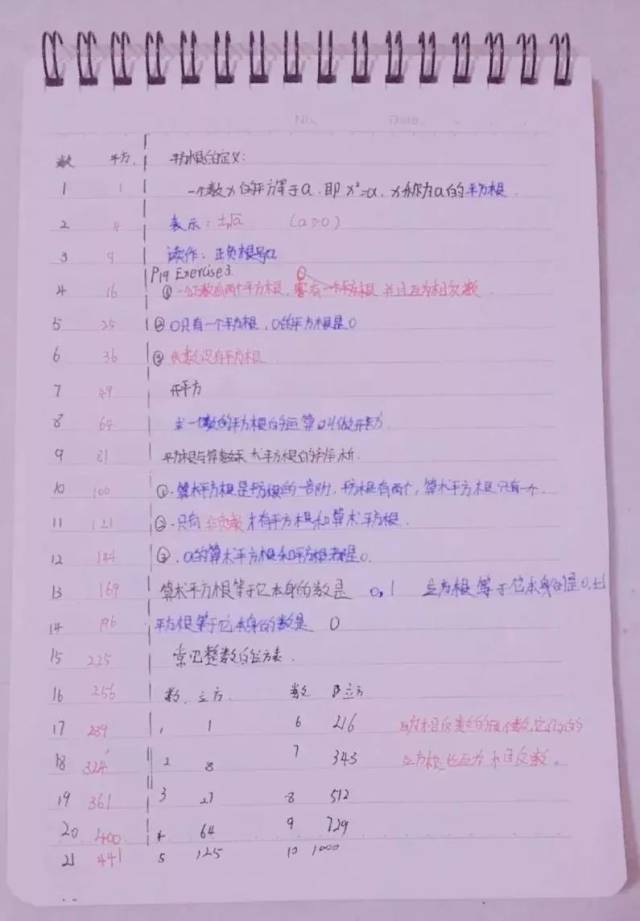 No. Date.
数 平方. 平方根的定义:
1 1 一个数x的平方等于a.即x²=a.x称为a的平方根.
2 表示:±√a (a≥0)
3 9 读作:正负根号a
P19 Exercise 3.
4 16 ①一个正数有两个平方根,并且互为相反数
5 25 ②0只有一个平方根,0的平方根是0
6 36 ③负数没有平方根
7 49 开平方
8 64 求一个数的平方根的运算叫做开平方.
9 81 平方根与算术平方根的
10 100 ①.算术平方根是平方根的一部分,平方根有两个,算术平方根只有一个.
11 121 ②.只有非负数才有平方根和算术平方根.
12 144 ③.0的算术平方根和平方根都是0.
13 169 算术平方根等于它本身的数是 0,1 立方根等于它本身的是0,±1
14 196 平方根等于它本身的数是 0
15 225 常见整数的立方表.
16 256 数. 立方. 数 立方
17 289 1 1 6 216 相反数的两个数,它们的
18 324 2 8 7 343 立方根也互为相反数。
19 361 3 27 8 512
20 400 4 64 9 729
21 441 5 125 10 1000